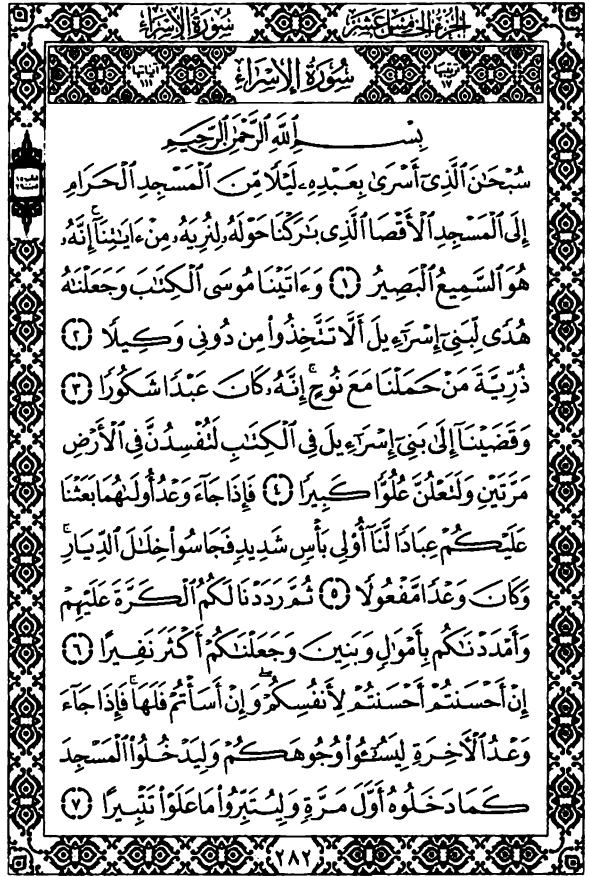 الجزء الخامس عشر سورة الإسراء
ترتيبها ١٧ سُورَةُ الإِسْرَاءِ آياتها ١١١
بِسْمِ ٱللَّهِ ٱلرَّحْمَٰنِ ٱلرَّحِيمِ
سُبْحَٰنَ ٱلَّذِىٓ أَسْرَىٰ بِعَبْدِهِۦ لَيْلًا مِّنَ ٱلْمَسْجِدِ ٱلْحَرَامِ
إِلَى ٱلْمَسْجِدِ ٱلْأَقْصَا ٱلَّذِى بَٰرَكْنَا حَوْلَهُۥ لِنُرِيَهُۥ مِنْ ءَايَٰتِنَآ ۚ إِنَّهُۥ
هُوَ ٱلسَّمِيعُ ٱلْبَصِيرُ ﴿١﴾ وَءَاتَيْنَا مُوسَى ٱلْكِتَٰبَ وَجَعَلْنَٰهُ
هُدًى لِّبَنِىٓ إِسْرَٰٓءِيلَ أَلَّا تَتَّخِذُوا۟ مِن دُونِى وَكِيلًا ﴿٢﴾
ذُرِّيَّةَ مَنْ حَمَلْنَا مَعَ نُوحٍ ۚ إِنَّهُۥ كَانَ عَبْدًا شَكُورًا ﴿٣﴾
وَقَضَيْنَآ إِلَىٰ بَنِىٓ إِسْرَٰٓءِيلَ فِى ٱلْكِتَٰبِ لَتُفْسِدُنَّ فِى ٱلْأَرْضِ
مَرَّتَيْنِ وَلَتَعْلُنَّ عُلُوًّا كَبِيرًا ﴿٤﴾ فَإِذَا جَآءَ وَعْدُ أُولَىٰهُمَا بَعَثْنَا
عَلَيْكُمْ عِبَادًا لَّنَآ أُو۟لِى بَأْسٍ شَدِيدٍ فَجَاسُوا۟ خِلَٰلَ ٱلدِّيَارِ ۚ
وَكَانَ وَعْدًا مَّفْعُولًا ﴿٥﴾ ثُمَّ رَدَدْنَا لَكُمُ ٱلْكَرَّةَ عَلَيْهِمْ
وَأَمْدَدْنَٰكُم بِأَمْوَٰلٍ وَبَنِينَ وَجَعَلْنَٰكُمْ أَكْثَرَ نَفِيرًا ﴿٦﴾
إِنْ أَحْسَنتُمْ أَحْسَنتُمْ لِأَنفُسِكُمْ ۖ وَإِنْ أَسَأْتُمْ فَلَهَا ۚ فَإِذَا جَآءَ
وَعْدُ ٱلْءَاخِرَةِ لِيَسُـۥٓـُٔوا۟ وُجُوهَكُمْ وَلِيَدْخُلُوا۟ ٱلْمَسْجِدَ
كَمَا دَخَلُوهُ أَوَّلَ مَرَّةٍ وَلِيُتَبِّرُوا۟ مَا عَلَوْا۟ تَتْبِيرًا ﴿٧﴾
٢٨٢